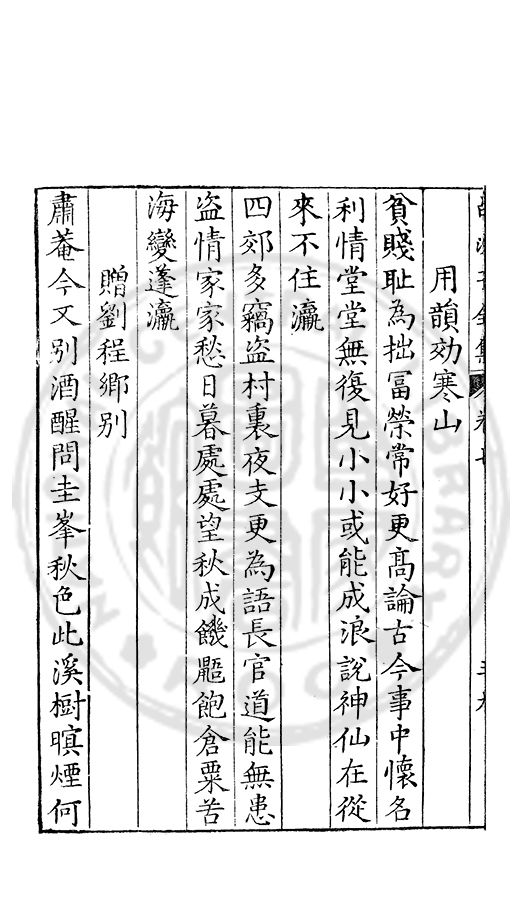 用韻効寒山
貧賤耻為拙冨榮常好更髙論古今事中懷名
利情堂堂無復見小小或能成浪說神仙在從
來不住瀛
四郊多竊盜村裏夜支更為語長官道能無患
盗情家家愁日暮處處望秋成饑鼯飽倉粟苦
海變蓬瀛
贈劉程鄉别
肅菴今又别酒醒問圭峯秋色此溪樹暝煙何